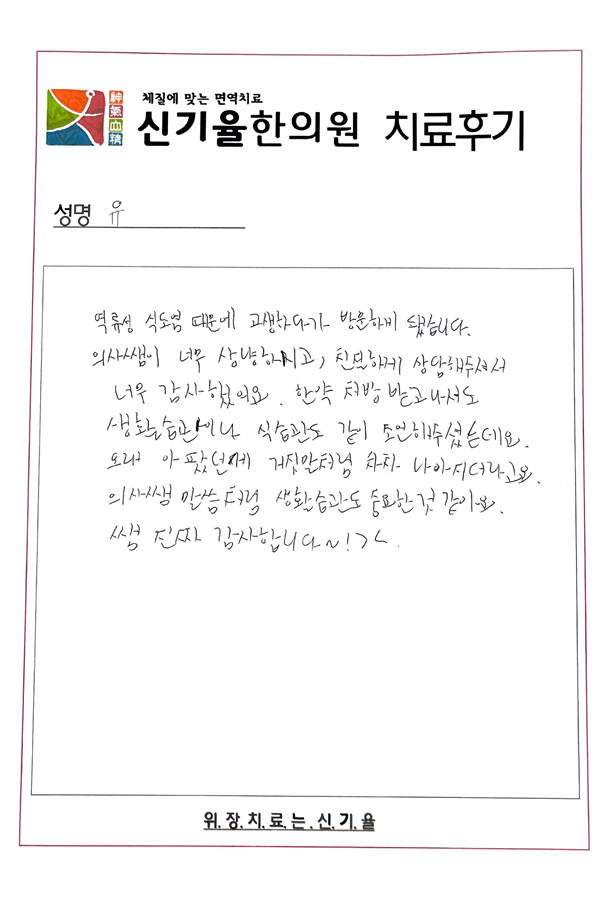 체질에 맞는 면역치료
神氣血精
신기율한의원 치료후기
성명 유
역류성 식도염 때문에 고생하다가 방문하게 됐습니다.
의사쌤이 너무 상냥하시고, 친절하게 상담해주셔서
너무 감사했어요. 한약 처방 받고나서도
생활습관이나 식습관도 같이 조언해주셨는데요.
오래 아팠던게 거짓말처럼 차차 나아지더라고요.
의사쌤 말씀처럼 생활습관도 중요한것 같아요.
쌤 진짜 감사합니다~!><
위.장.치.료.는.신.기.율